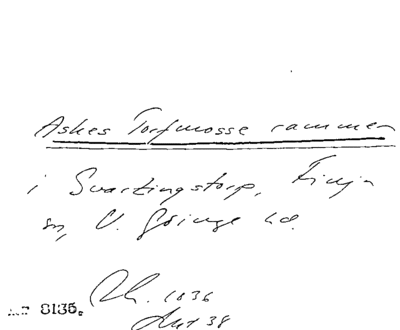 Askes Torfmosse rammen
i Svartingstorp, Finja
sn, V. Göinge hd.
1036
8135.
38